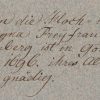 die Hoch-
gna Freyfrau
berg ist in Go
1696. ihres Al
gnädig